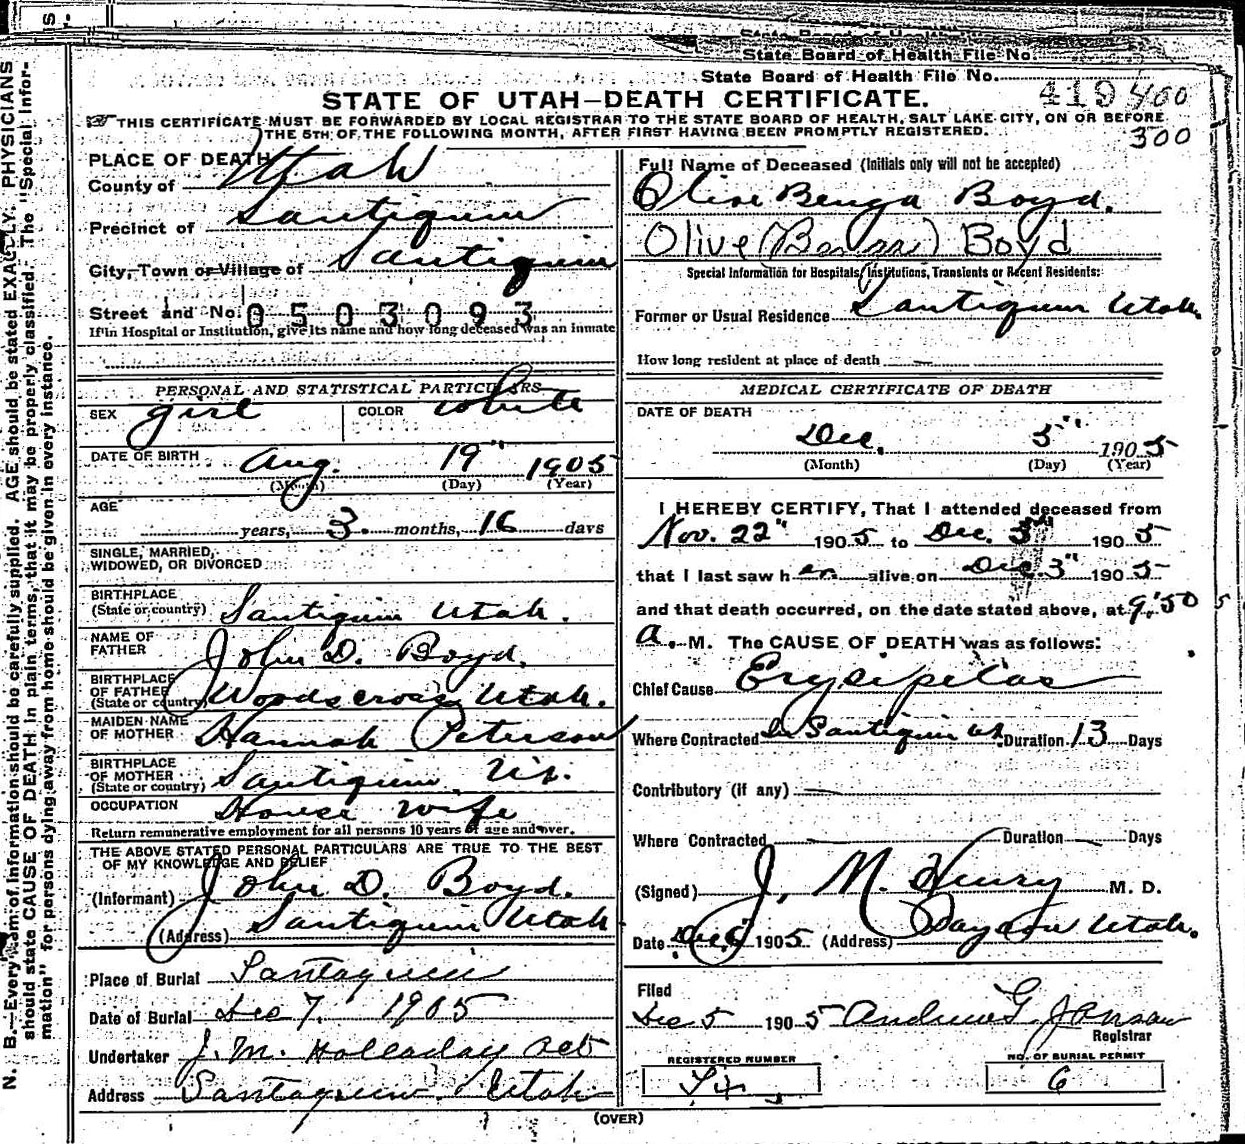 State Board of Health File No.
State Board of Health File No. 419 400
STATE OF UTAH—DEATH CERTIFICATE.
THIS CERTIFICATE MUST BE FORWARDED BY LOCAL REGISTRAR TO THE STATE BOARD OF HEALTH, SALT LAKE CITY, ON OR BEFORE
THE 5TH OF THE FOLLOWING MONTH, AFTER FIRST HAVING BEEN PROMPTLY REGISTERED.
300
N. B.—Every item of information should be carefully supplied. AGE should be stated EXACTLY. PHYSICIANS
should state CAUSE OF DEATH in plain terms, that it may be properly classified. The "Special Infor-
mation" for persons dying away from home should be given in every instance.
PLACE OF DEATH
County of Utah
Precinct of Santiquin
City, Town or Village of Santiquin
Street and No. 0503093
If in Hospital or Institution, give its name and how long deceased was an inmate
PERSONAL AND STATISTICAL PARTICULARS
SEX girl COLOR white
DATE OF BIRTH Aug. 19" 1905
(Month) (Day) (Year)
AGE
years, 3. months, 16 days
SINGLE, MARRIED,
WIDOWED, OR DIVORCED
BIRTHPLACE
(State or country) Santiquin Utah.
NAME OF
FATHER John D. Boyd.
BIRTHPLACE
OF FATHER
(State or country) Woodscross Utah.
MAIDEN NAME
OF MOTHER Hannah Peterson
BIRTHPLACE
OF MOTHER
(State or country) Santiquin Ut.
OCCUPATION House wife
Return remunerative employment for all persons 10 years of age and over.
THE ABOVE STATED PERSONAL PARTICULARS ARE TRUE TO THE BEST
OF MY KNOWLEDGE AND BELIEF
(Informant) John D. Boyd.
(Address) Santiquin Utah
Place of Burial Santaquin
Date of Burial Dec 7. 1905
Undertaker J. M. Holladay
Address Santaquin Utah
Full Name of Deceased (Initials only will not be accepted)
Olive Benga Boyd.
Olive Boyd
Special Information for Hospitals, Institutions, Transients or Recent Residents:
Former or Usual Residence Santiquin Utah.
How long resident at place of death —
MEDICAL CERTIFICATE OF DEATH
DATE OF DEATH
Dec. 5" 1905
(Month) (Day) (Year)
I HEREBY CERTIFY, That I attended deceased from
Nov. 22" 1905 to Dec. 3" 1905
that I last saw her alive on Dec. 3" 1905
and that death occurred, on the date stated above, at 9:50
a. M. The CAUSE OF DEATH was as follows:
Chief Cause Erysipelas
Where Contracted In Santiquin Ut. Duration 13 Days
Contributory (if any) —
Where Contracted — Duration — Days
(Signed) J. M. Henry M. D.
Date Dec 6 1905 (Address) Payson Utah.
Filed
Dec 5 1905 Andrew G. Jonson
Registrar
REGISTERED NUMBER
NO. OF BURIAL PERMIT
6
(OVER)